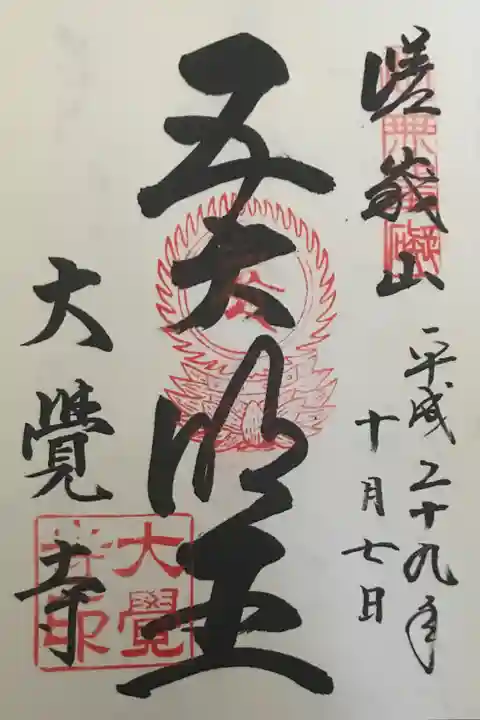 嵯峨山
平成二十九年
十月七日
五大明王
大覺寺
大覺
寺印